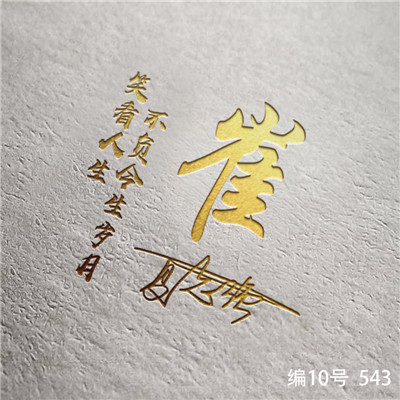 崔
不负今生岁月
笑看人生
编10号 543